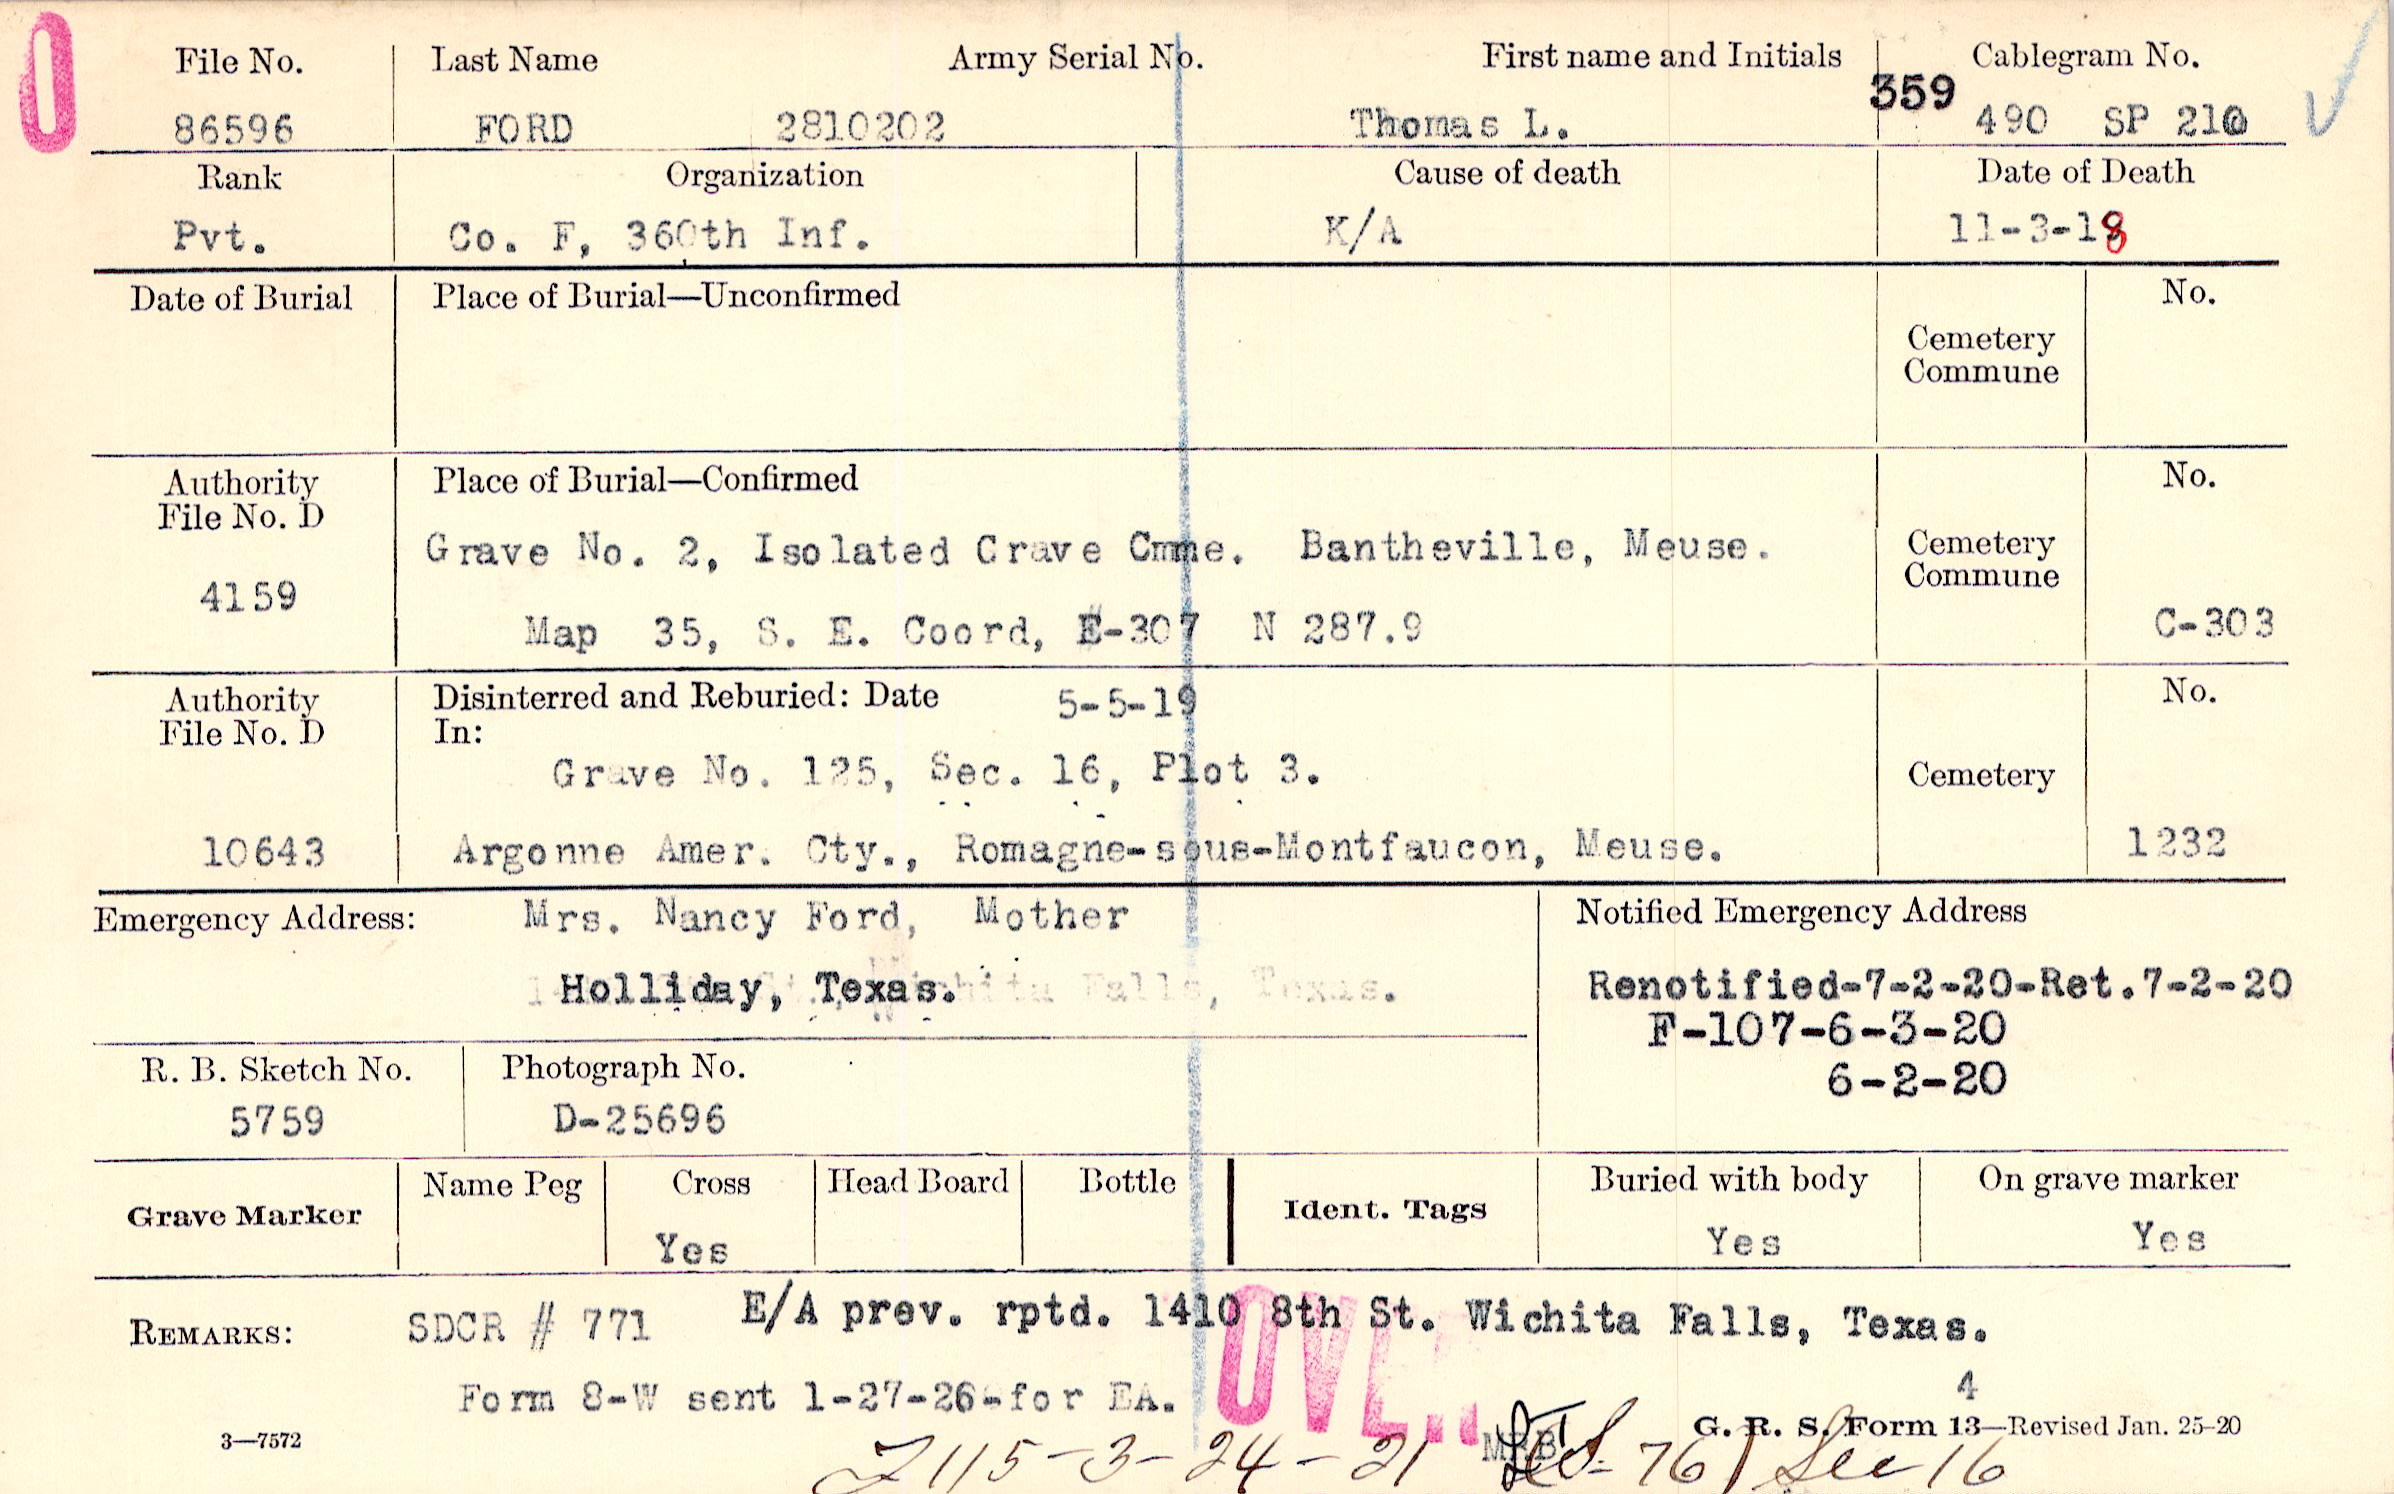 O
File No. Last Name Army Serial No. First name and Initials Cablegram No.
359
86596 FORD 2810202 Thomas L. 490 SP 210
Rank Organization Cause of death Date of Death
Pvt. Co. F, 360th Inf. K/A 11-3-18
Date of Burial Place of Burial—Unconfirmed No.
Cemetery
Commune
Authority Place of Burial—Confirmed No.
File No. D
Grave No. 2, Isolated Grave Cmne. Bantheville, Meuse. Cemetery
Commune
4159
Map 35, S. E. Coord, E-307 N 287.9 C-303
Authority Disinterred and Reburied: Date 5-5-19 No.
File No. D In:
Grave No. 125, Sec. 16, Plot 3. Cemetery
10643 Argonne Amer. Cty., Romagne-sous-Montfaucon, Meuse. 1232
Emergency Address: Mrs. Nancy Ford, Mother Notified Emergency Address
Holliday, Texas. Falls, Texas. Renotified-7-2-20-Ret.7-2-20
F-107-6-3-20
R. B. Sketch No. Photograph No. 6-2-20
5759 D-25696
Grave Marker Name Peg Cross Head Board Bottle Ident. Tags Buried with body On grave marker
Yes Yes Yes
REMARKS: SDCR # 771 E/A prev. rptd. 1410 8th St. Wichita Falls, Texas.
OVER
Form 8-W sent 1-27-26-for EA. 4
3—7572 G. R. S. Form 13—Revised Jan. 25-20
115-3-24-21 761 Sec 16